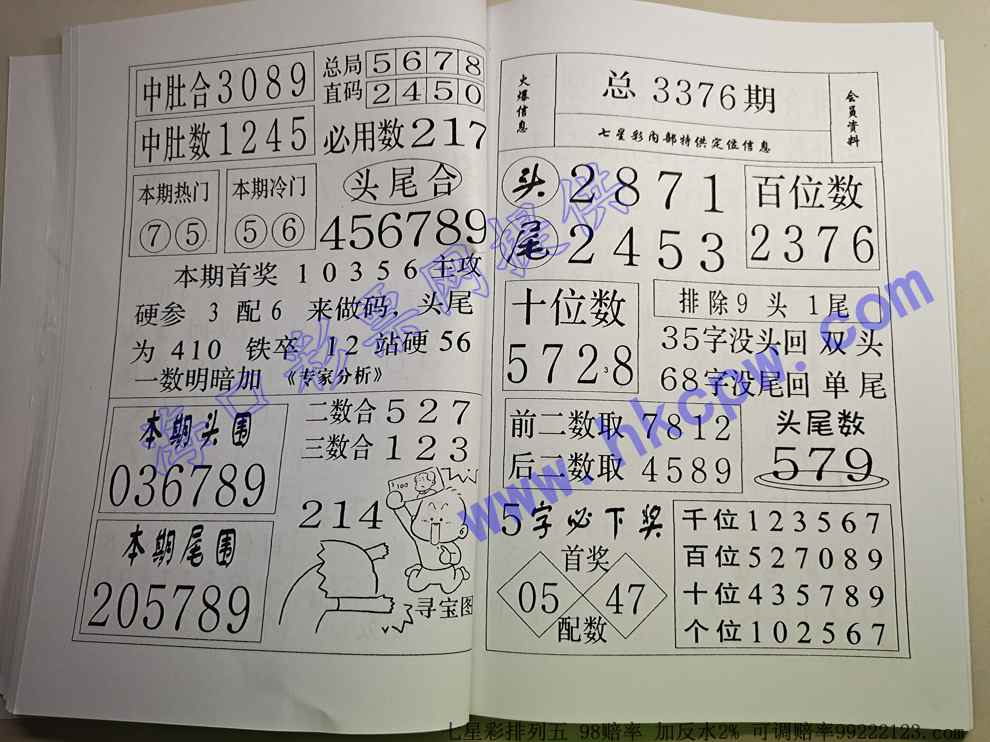 中肚合3089
总局 5678
直码 2450
中肚数1245
必用数217
本期热门
⑦⑤
本期冷门
⑤⑥
头尾合
456789
本期首奖 10356 主攻
硬参 3 配6 来做码，头尾
为 410 铁卒 12 站硬 56
一数明暗加 《专家分析》
本期头围
036789
二数合 527
三数合 123
214
本期尾围
205789
寻宝图
火爆信息
总 3376期
七星彩内部特供定位信息
会员资料
头 2871
尾 2453
百位数
2376
十位数
5728
排除9 头 1尾
35字没头回 双 头
68字没尾回 单 尾
前二数取 7812
后二数取 4589
头尾数
579
5字必下奖
首奖
05 47
配数
千位123567
百位527089
十位435789
个位102567
海口彩票网提供
www.hkcpw.com
七星彩排列五 98赔率 加反水2% 可调赔率99222123.com